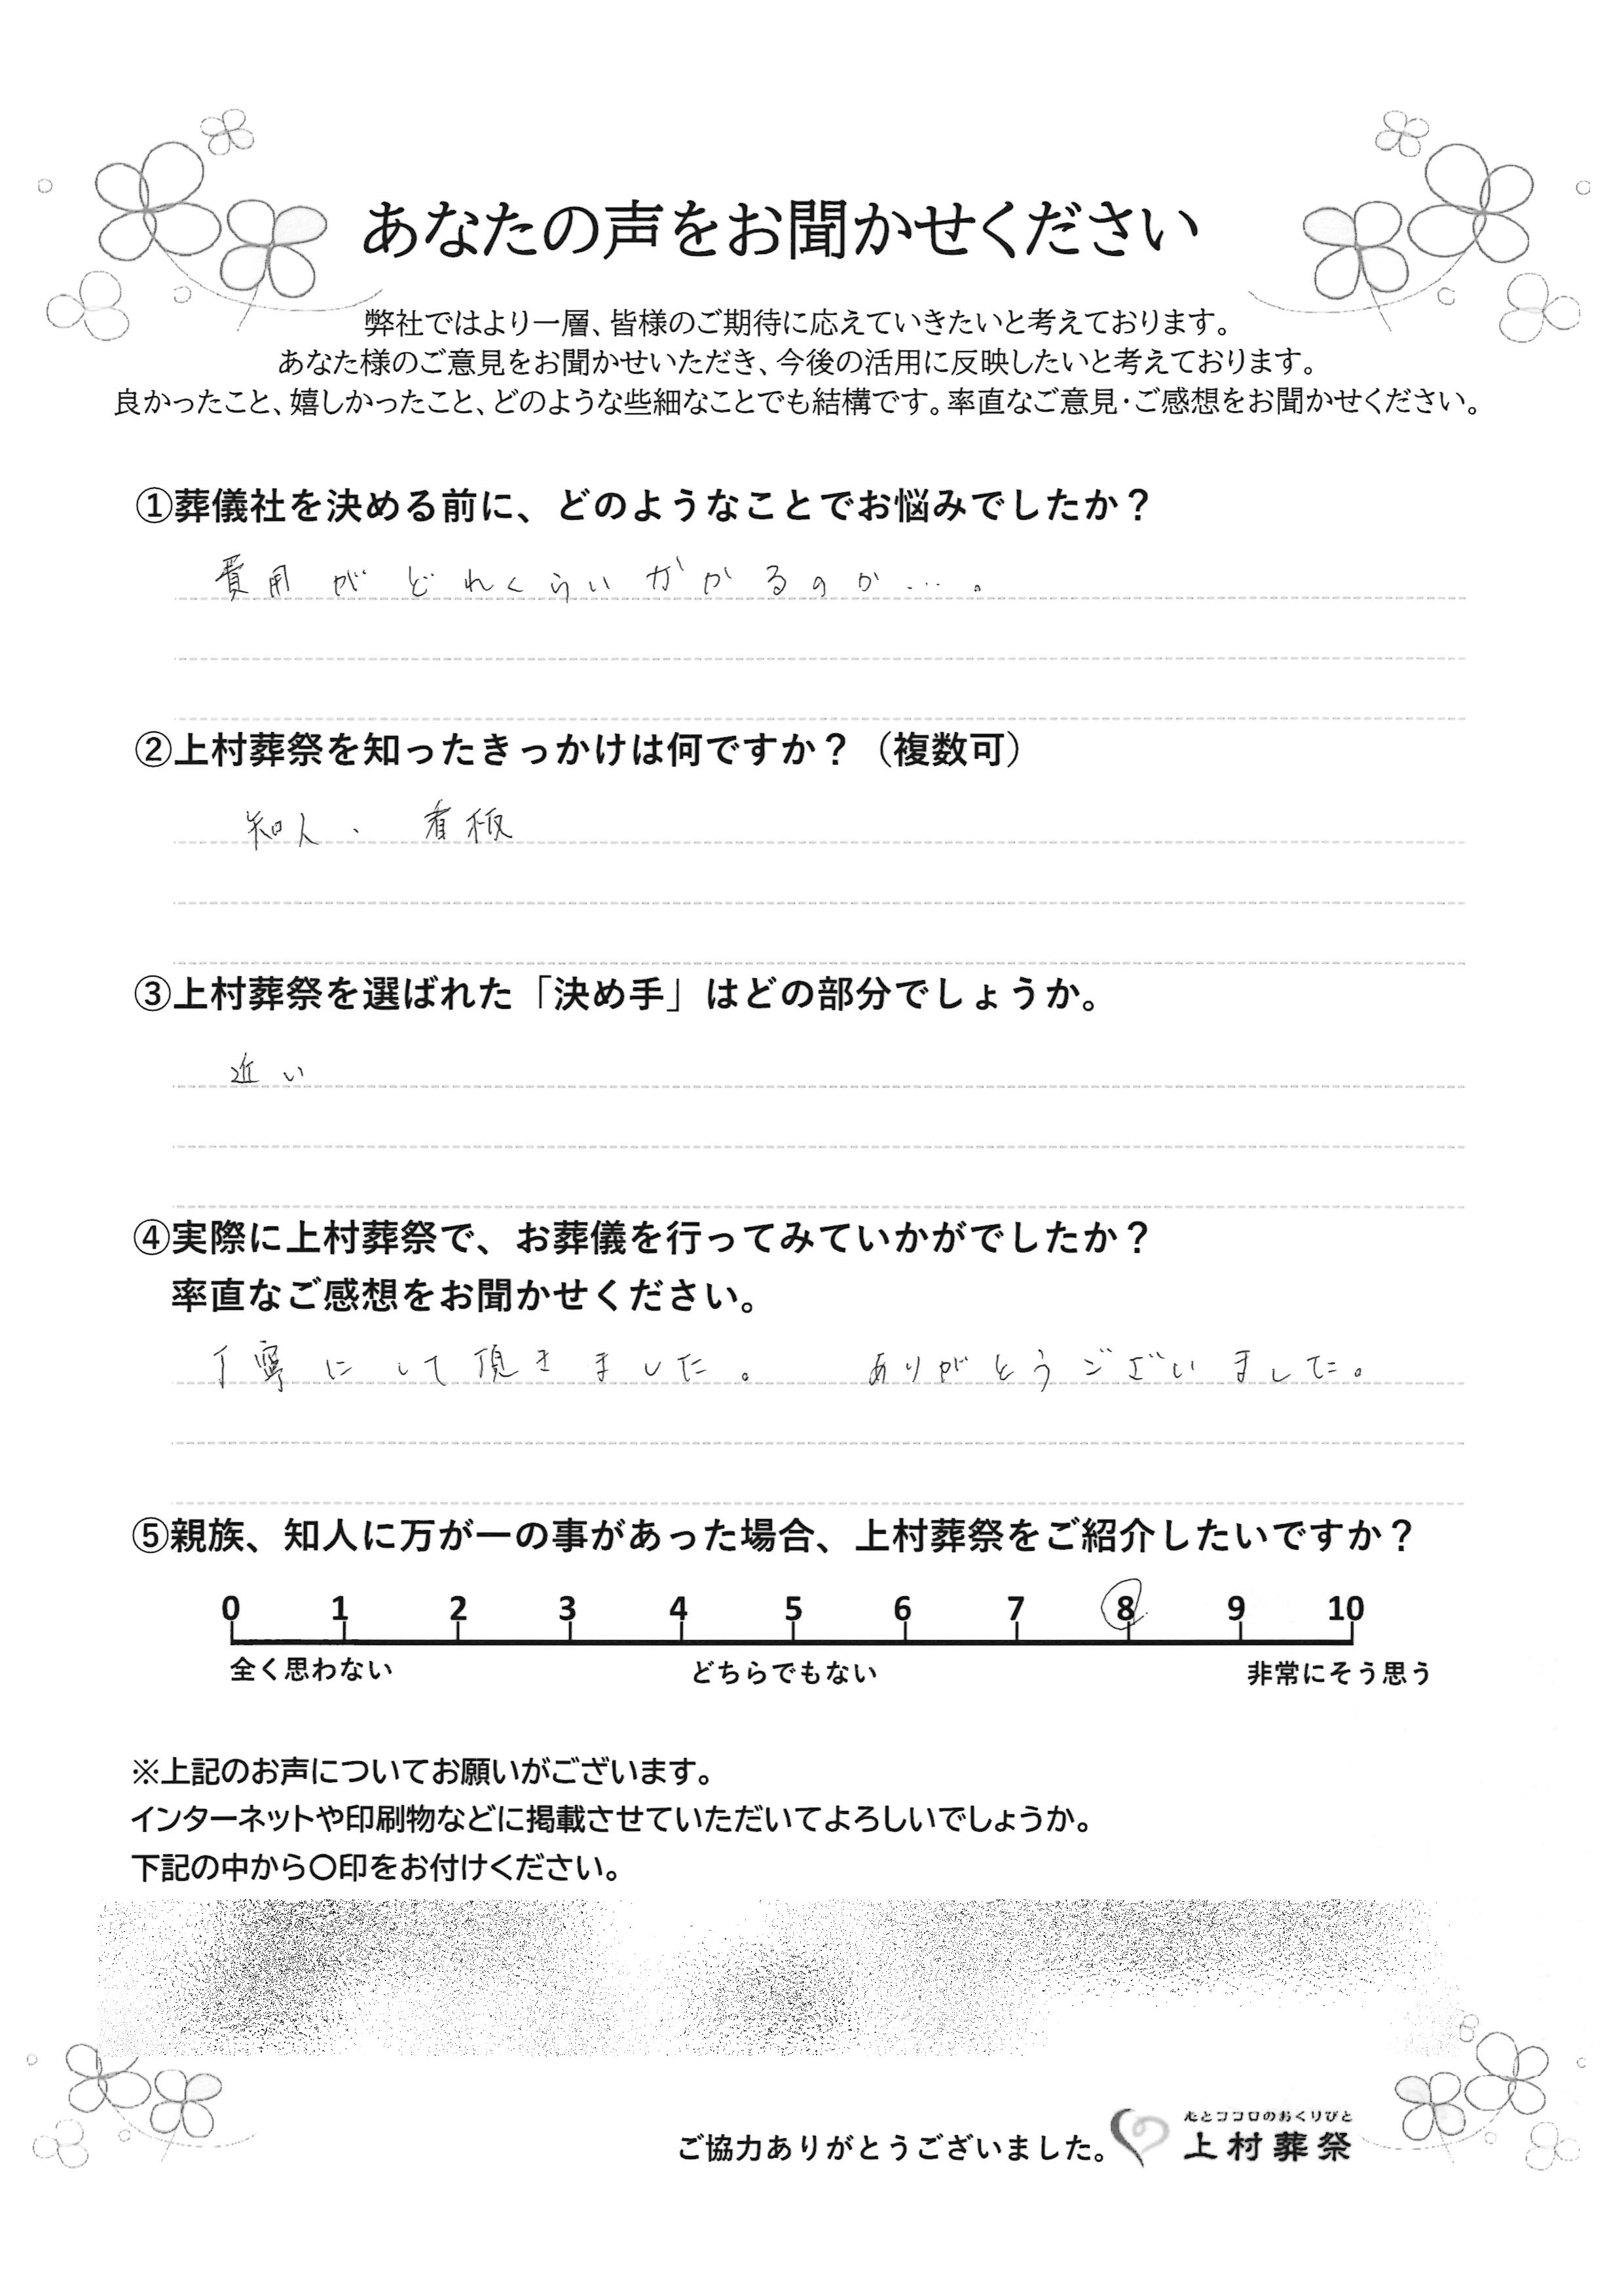 あなたの声をお聞かせください
弊社ではより一層、皆様のご期待に応えていきたいと考えております。
あなた様のご意見をお聞かせいただき、今後の活用に反映したいと考えております。
良かったこと、嬉しかったこと、どのような些細なことでも結構です。率直なご意見・ご感想をお聞かせください。
①葬儀社を決める前に、どのようなことでお悩みでしたか？
費用がどれくらいかかるのか…。
②上村葬祭を知ったきっかけは何ですか？（複数可）
知人、看板
③上村葬祭を選ばれた「決め手」はどの部分でしょうか。
近い
④実際に上村葬祭で、お葬儀を行ってみていかがでしたか？
率直なご感想をお聞かせください。
丁寧にして頂きました。 ありがとうございました。
⑤親族、知人に万が一の事があった場合、上村葬祭をご紹介したいですか？
0 1 2 3 4 5 6 7 8 9 10
全く思わない どちらでもない 非常にそう思う
※上記のお声についてお願いがございます。
インターネットや印刷物などに掲載させていただいてよろしいでしょうか。
下記の中から〇印をお付けください。
ご協力ありがとうございました。
心とココロのおくりびと
上村葬祭